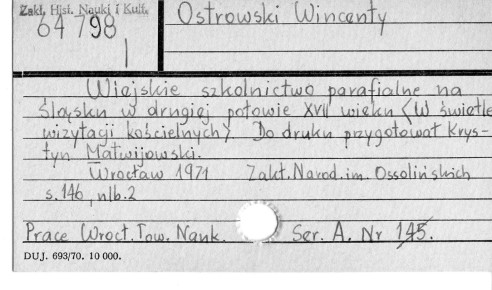 Zakł. Hist. Nauki i Kult.
64 798
Ostrowski Wincenty
Wiejskie szkolnictwo parafialne na
Śląsku w drugiej połowie XVII wieku (W świetle
wizytacji kościelnych). Do druku przygotował Krys-
tyn Matwijowski.
Wrocław 1971 Zakł. Narod. im. Ossolińskich
s. 146, nlb. 2
Prace Wrocł. Tow. Nauk. Ser. A. Nr 145.
DUJ. 693/70. 10 000.